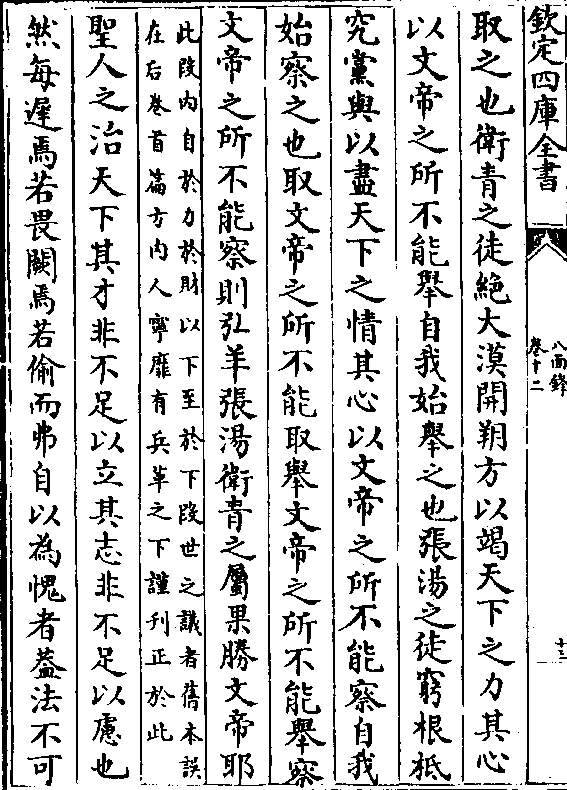 欽定四庫全書
八面鋒
卷十二
十三
取之也衛青之徒絶大漠開朔方以竭天下之力其心
以文帝之所不能舉自我始舉之也張湯之徒窮根柢
究黨與以盡天下之情其心以文帝之所不能察自我
始察之也取文帝之所不能取舉文帝之所不能舉察
文帝之所不能察則弘羊張湯衛青之屬果勝文帝耶
此段内自於力於財以下至於下段世之議者舊本誤
在后卷首篇方内人寧靡有兵革之下謹刋正於此
聖人之治天下其才非不足以立其志非不足以慮也
然每遲焉若畏闕焉若偷而弗自以為愧者葢法不可